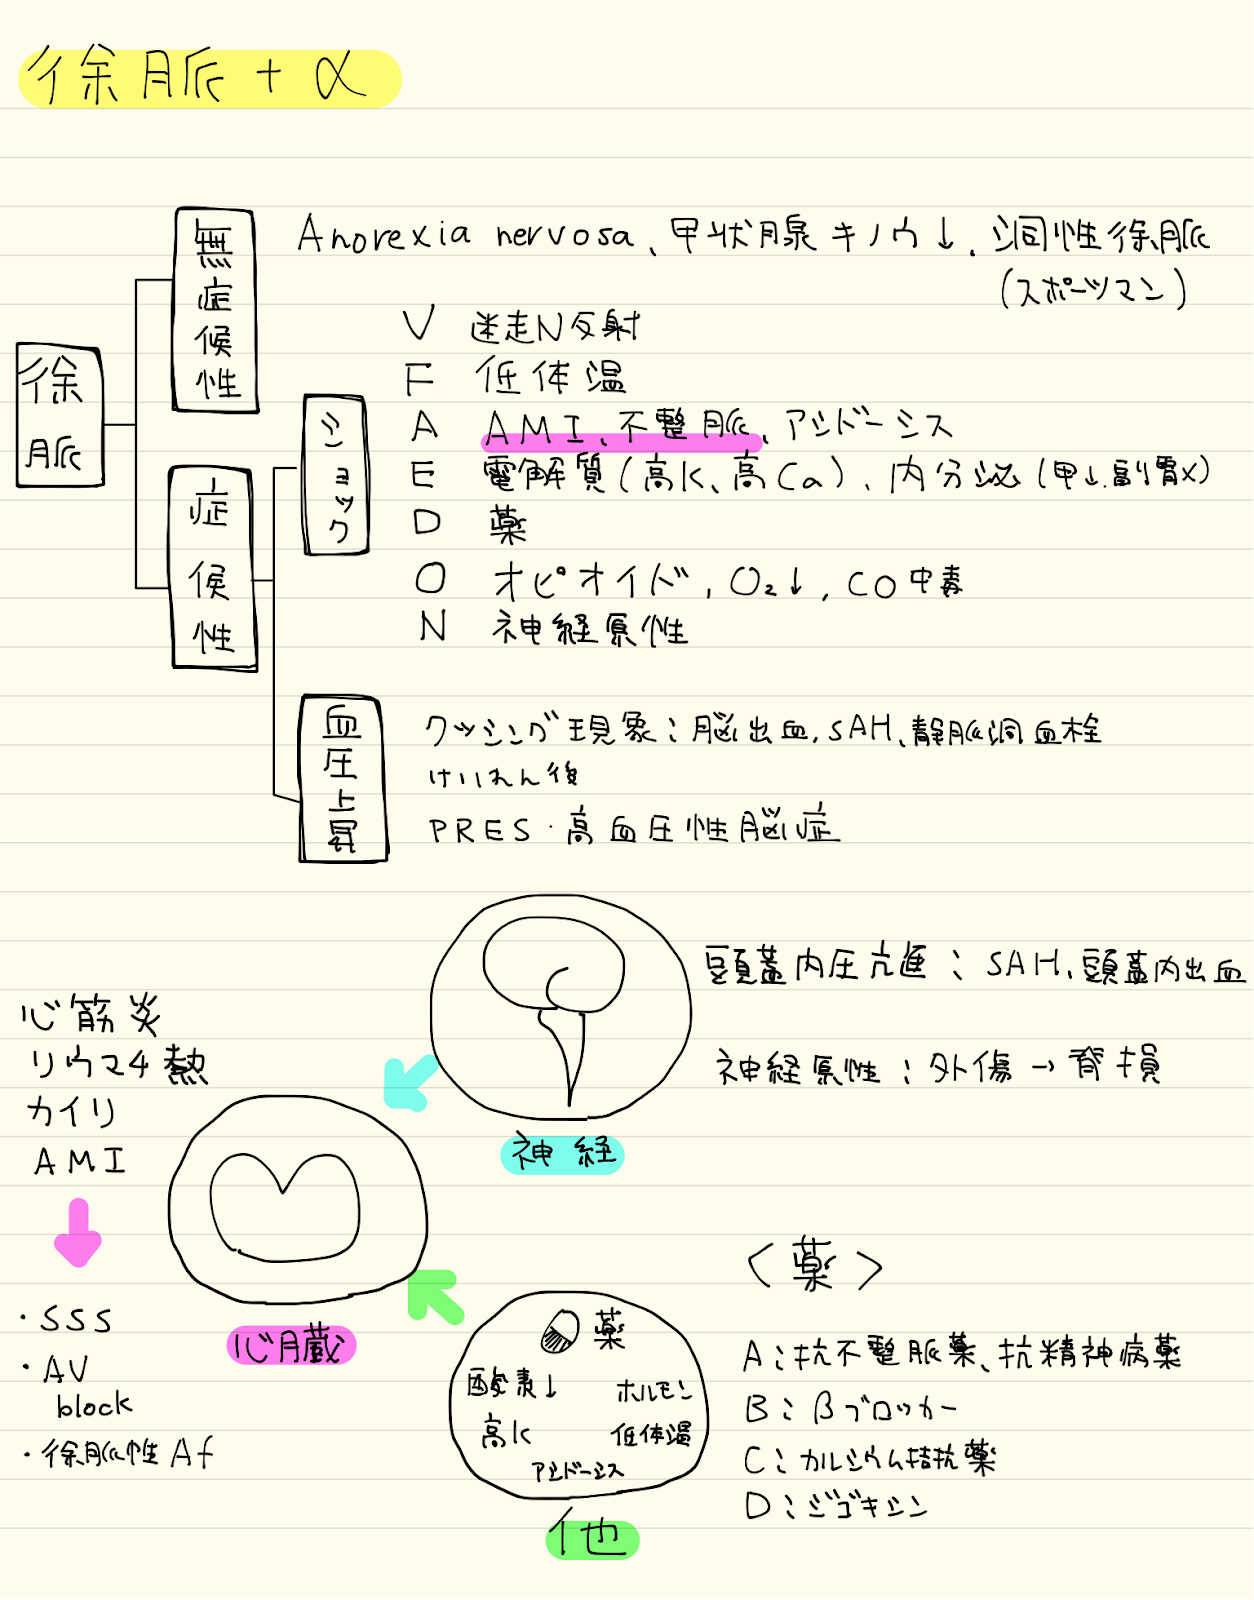 徐脈+α
無症候性
Anorexia nervosa、甲状腺キノウ↓、洞性徐脈
(スポーツマン)
徐脈
症候性
ショック
V 迷走N反射
F 低体温
A AMI、不整脈、アシドーシス
E 電解質(高K、高Ca)、内分泌(甲↓.副腎×)
D 薬
O オピオイド, O₂↓, CO中毒
N 神経原性
血圧上昇
クッシング現象:脳出血, SAH、静脈洞血栓
けいれん後
PRES・高血圧性脳症
頭蓋内圧亢進:SAH、頭蓋内出血
神経原性:外傷→脊損
神経
心筋炎
リウマチ熱
カイリ
AMI
・SSS
・AV
block
・徐脈性Af
心臓
薬
酸素↓ ホルモン
高K 低体温
アシドーシス
他
<薬>
A:抗不整脈薬、抗精神病薬
B:βブロッカー
C:カルシウム拮抗薬
D:ジゴキシン